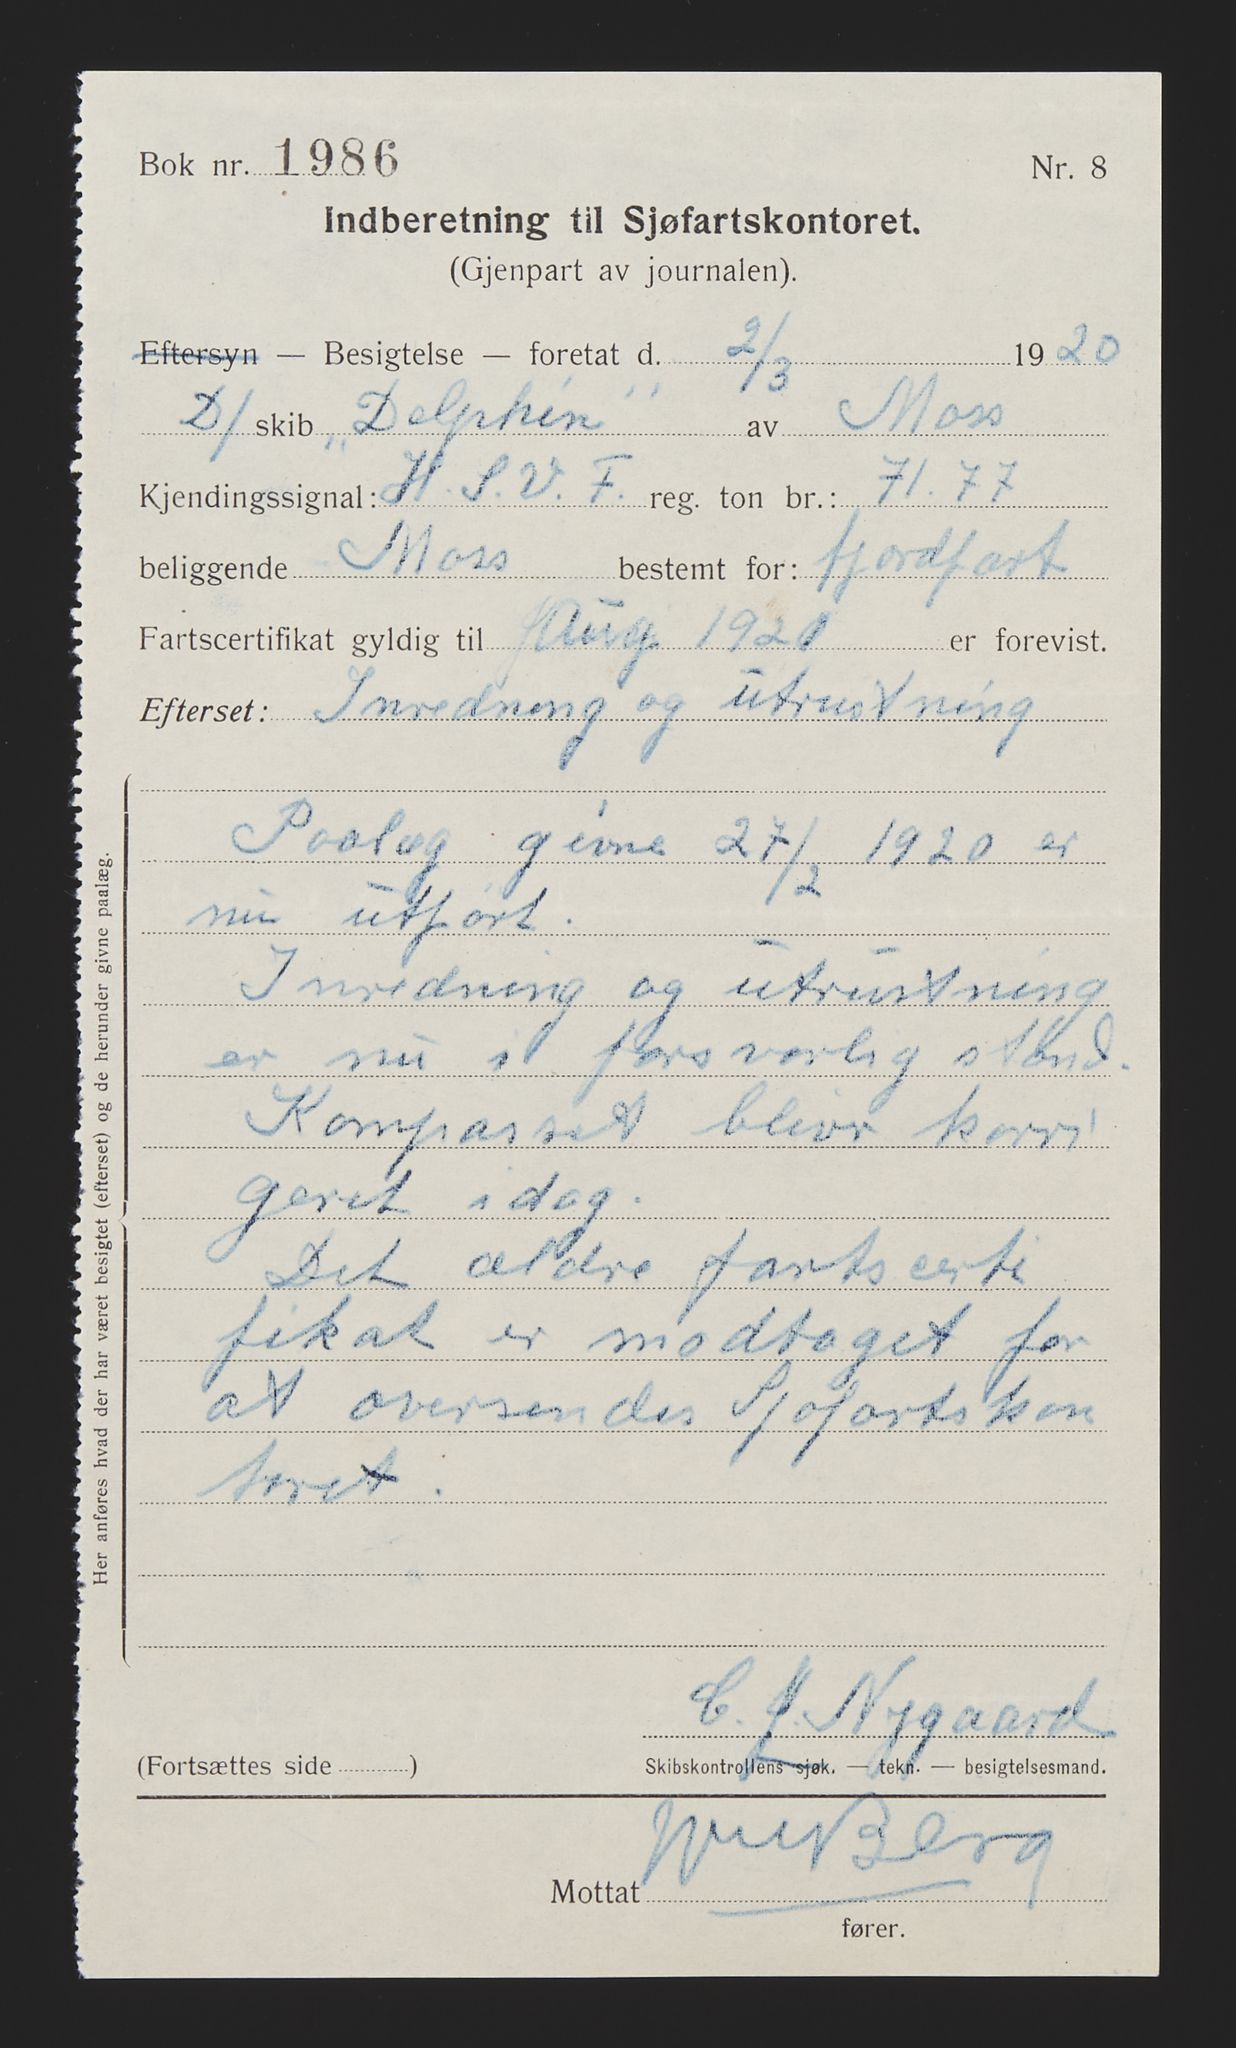 Bok nr. 1986 Nr. 8
Indberetning til Sjøfartskontoret.
(Gjenpart av journalen).
Eftersyn — Besigtelse — foretat d. 2/3 1920
D/ skib „Delphin" av Moss
Kjendingssignal: H. S. V. F. reg. ton br.: 71.77
beliggende Moss bestemt for: fjordfart
Fartscertifikat gyldig til Aug 1920 er forevist.
Efterset: Inredning og utrustning
Her anføres hvad der har været besigtet (efterset) og de herunder givne paalæg.
Paalæg givne 27/2 1920 er
nu utført.
Inredning og utrustning
er nu i forsvarlig stand.
Kompasset blivr korri
geret idag.
Det ældre fartscerti
fikat er modtaget for
at oversendes Sjøfartskon
toret.
C. J. Nygaard
(Fortsættes side ) Skibskontrollens sjøk. — tekn. — besigtelsesmand.
Berg
Mottat
fører.